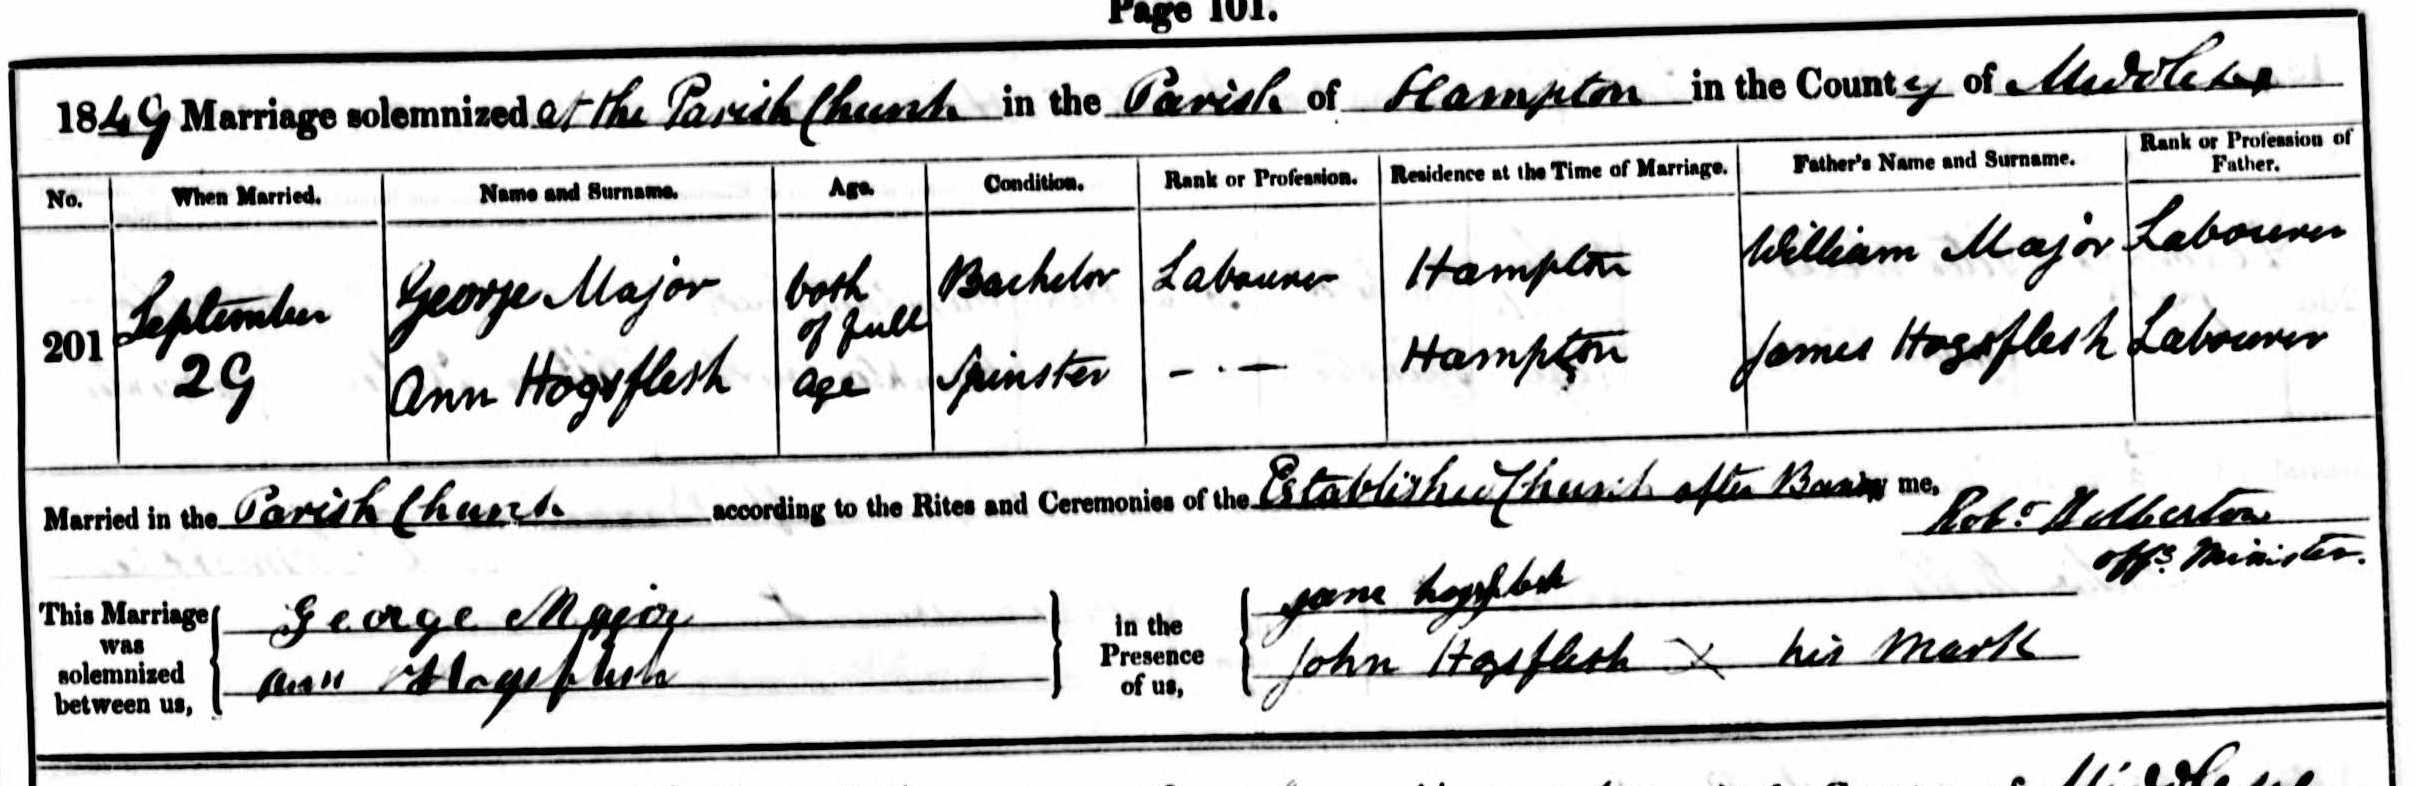 Page 101.
1849 Marriage solemnized at the Parish Church in the Parish of Hampton in the County of Middlesex
No. When Married. Name and Surname. Age. Condition. Rank or Profession. Residence at the Time of Marriage. Father's Name and Surname. Rank or Profession of Father.
201 September 29
George Major both of full age Bachelor Labourer Hampton William Major Labourer
Ann Hogsflesh Spinster - . - Hampton James Hogsflesh Labourer
Married in the Parish Church according to the Rites and Ceremonies of the Established Church after Banns me,
Robt.
offg. Minister.
This Marriage was solemnized between us,
George Major
Ann Hogsflesh
in the Presence of us,
Jane hogsflesh
John Hogsflesh X his Mark